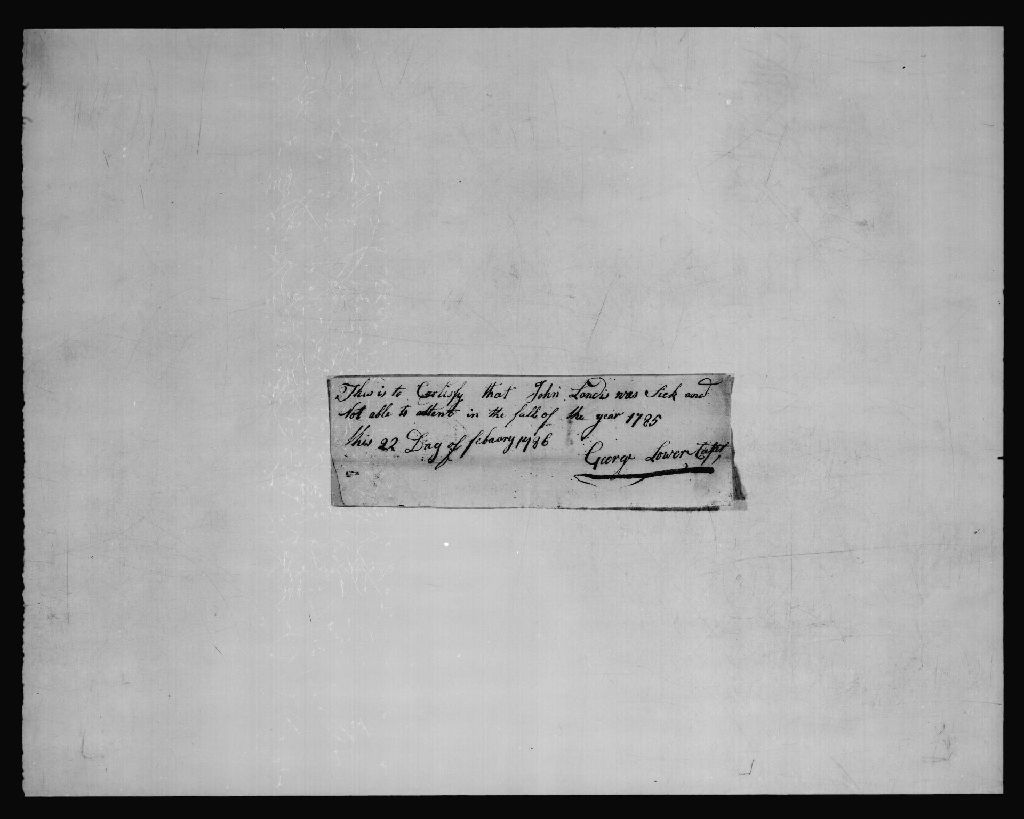 This is to Certisfy that John Landis was Sick and
Not able to attent in the falle of the year 1785
this 22 Day of febuary 1786
Georg Lower Capt